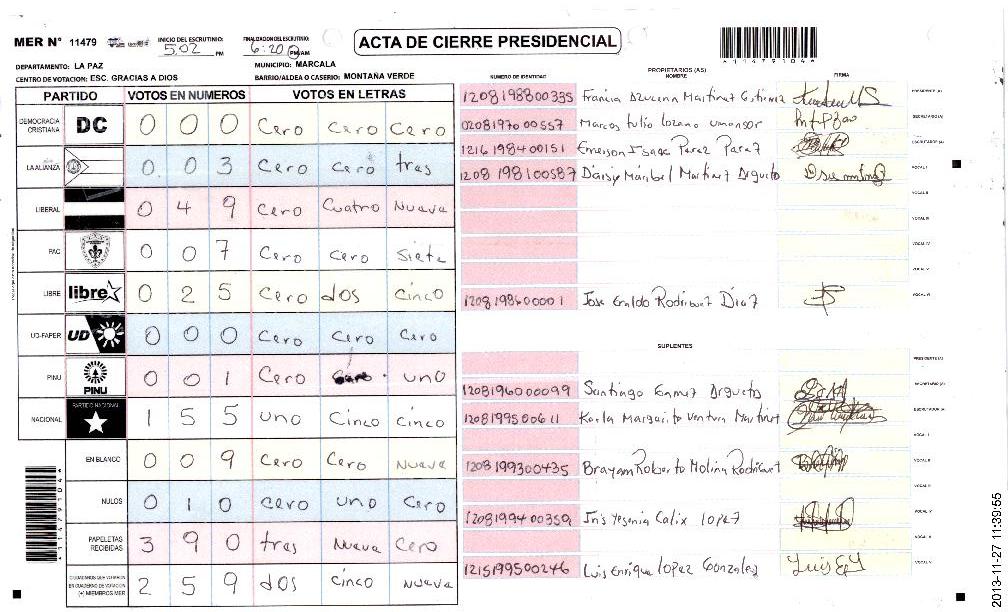 MER N° 11479 INICIO DEL ESCRUTINIO: 5:02 PM FINALIZACION DEL ESCRUTINIO: 6:20 PM/AM
ACTA DE CIERRE PRESIDENCIAL
*11479104*
DEPARTAMENTO: LA PAZ MUNICIPIO: MARCALA
CENTRO DE VOTACION: ESC. GRACIAS A DIOS BARRIO/ALDEA O CASERIO: MONTAÑA VERDE
PARTIDO VOTOS EN NUMEROS VOTOS EN LETRAS
DEMOCRACIA CRISTIANA DC 0 0 0 Cero Cero Cero
LA ALIANZA 0 0 3 Cero Cero tres
LIBERAL 0 4 9 Cero Cuatro Nueve
PAC 0 0 7 Cero Cero siete
LIBRE libre 0 2 5 Cero dos cinco
UD-FAPER UD 0 0 0 Cero Cero Cero
PINU PINU 0 0 1 Cero Cero uno
NACIONAL PARTIDO NACIONAL 1 5 5 uno Cinco cinco
EN BLANCO 0 0 9 Cero Cero Nueve
NULOS 0 1 0 cero uno Cero
PAPELETAS RECIBIDAS 3 9 0 tres Nueve Cero
CIUDADANOS QUE VOTARON EN CUADERNO DE VOTACION (+) MIEMBROS MER 2 5 9 dos cinco Nueve
*11479104*
PROPIETARIOS (AS)
NUMERO DE IDENTIDAD NOMBRE FIRMA
1208198800335 Francia Azucena Martinez PRESIDENTE (A)
0208197000557 Marcos tulio lozano SECRETARIO (A)
1216198400151 Emerson Isaac Perez Perez ESCRUTADOR (A)
1208198100587 Daisy Maribel Martinez Argueta VOCAL I
VOCAL II
VOCAL III
VOCAL IV
VOCAL V
Jose Rodriguez Diaz VOCAL VI
SUPLENTES
PRESIDENTE (A)
1208196000099 Santiago Gomez Argueta SECRETARIO (A)
1208199500611 Karla Margarita Ventura Martinez ESCRUTADOR (A)
VOCAL I
1208199300435 Brayam Roberto Molina Rodriguez VOCAL II
VOCAL III
Iris Yesenia Calix lopez VOCAL IV
1215199500246 Luis Enrique lopez Gonzales
2013-11-27 11:39:55